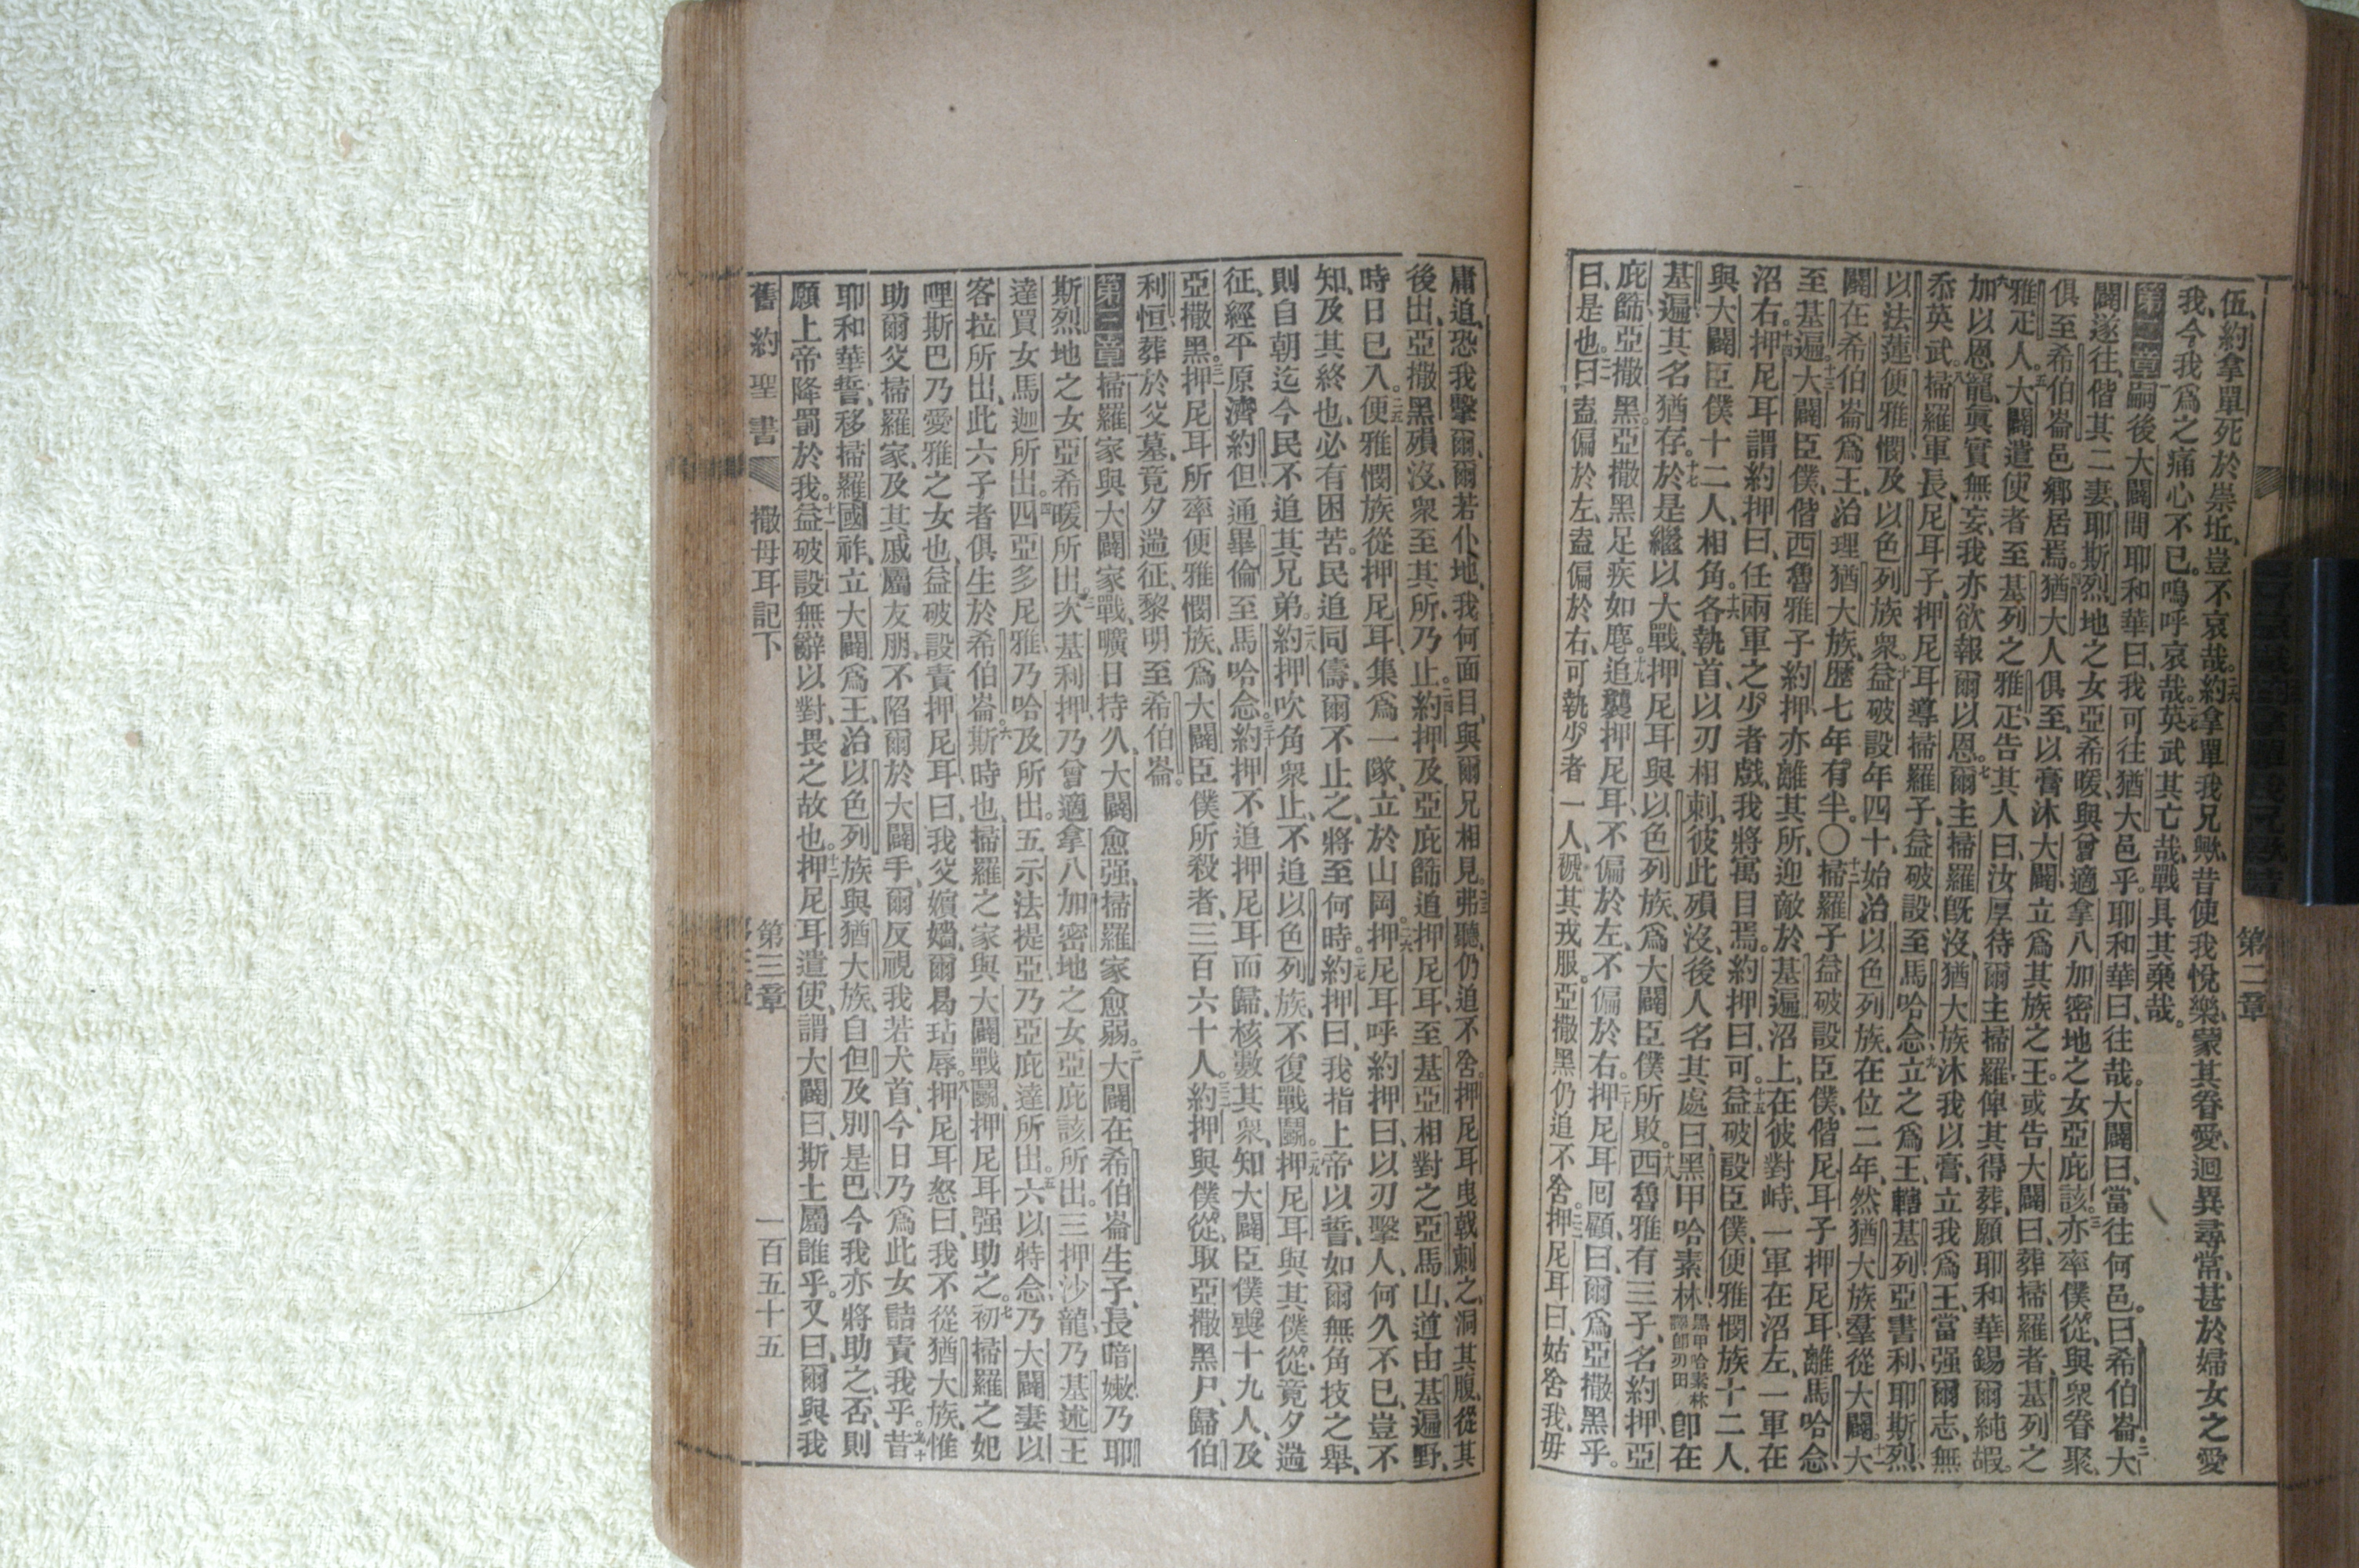 伍、約拿單死於崇坵、豈不哀哉。二六約拿單我兄歟、昔使我悅樂、蒙其眷愛、迥異尋常、甚於婦女之愛
我、今我爲之痛心不已。嗚呼哀哉。二七英武其亡哉、戰具其棄哉。
第二章 一嗣後大闢問耶和華曰、我可往猶大邑乎。耶和華曰、往哉。大闢曰、當往何邑。曰希伯崙。二大
闢遂往、偕其二妻、耶斯烈地之女亞希暖、與曾適拿八加密地之女亞庇該。三亦率僕從、與衆眷聚
俱至希伯崙邑鄉居焉。四猶大人俱至、以膏沐大闢、立爲其族之王。或告大闢曰、葬掃羅者、基列之
雅疋人。五大闢遣使者至基列之雅疋、告其人曰、汝厚待爾主掃羅、俾其得葬、願耶和華錫爾純嘏。
六加以恩寵、眞實無妄、我亦欲報爾以恩。七爾主掃羅旣沒、猶大族沐我以膏、立我爲王、當强爾志、無
忝英武。八掃羅軍長、尼耳子、押尼耳導掃羅子益破設至馬哈念、九立之爲王、轄基列、亞書利、耶斯烈、
以法蓮、便雅憫、及以色列族衆。十益破設年四十、始治以色列族、在位二年、然猶大族羣從大闢。十一大
闢在希伯崙爲王、治理猶大族、歷七年有半。〇十二掃羅子益破設臣僕、偕尼耳子押尼耳、離馬哈念
至基遍。十三大闢臣僕、偕西魯雅子約押、亦離其所、迎敵於基遍沼上、在彼對峙、一軍在沼左、一軍在
沼右。十四押尼耳謂約押曰、任兩軍之少者戲、我將寓目焉。約押曰、可。十五益破設臣僕、便雅憫族十二人、
與大闢臣僕十二人、相角。十六各執首、以刃相刺、彼此殞沒、後人名其處曰黑甲哈素林黑甲哈素林譯卽刃田卽在
基遍、其名猶存。十七於是繼以大戰、押尼耳與以色列族、爲大闢臣僕所敗。十八西魯雅有三子、名約押、亞
庇篩、亞撒黑。亞撒黑足疾如麀。十九追襲押尼耳、不偏於左、不偏於右。二十押尼耳回顧、曰、爾爲亞撒黑乎。
曰、是也。二一曰、盍偏於左、盍偏於右、可執少者一人、褫其戎服。亞撒黑仍追不舍。二二押尼耳曰、姑舍我、毋
庸追、恐我擊爾、爾若仆地、我何面目、與爾兄相見。二三弗聽、仍追不舍。押尼耳曳戟刺之、洞其腹、從其
後出、亞撒黑殞沒、衆至其所、乃止。二四約押及亞庇篩追押尼耳、至基亞相對之亞馬山、道由基遍野、
時日已入。二五便雅憫族從押尼耳、集爲一隊、立於山岡。二六押尼耳呼約押曰、以刃擊人、何久不已、豈不
知、及其終也、必有困苦。民追同儔、爾不止之、將至何時。二七約押曰、我指上帝以誓、如爾無角技之舉、
則自朝迄今、民不追其兄弟。二八約押吹角、衆止、不追以色列族、不復戰鬭。二九押尼耳與其僕從、竟夕遄
征、經平原、濟約但、通畢倫、至馬哈念。三十約押不追押尼耳而歸、核數其衆、知大闢臣僕喪十九人、及
亞撒黑。三一押尼耳所率便雅憫族、爲大闢臣僕所殺者、三百六十人。三二約押與僕從、取亞撒黑尸、歸伯
利恒、葬於父墓、竟夕遄征、黎明至希伯崙。
第三章 一掃羅家與大闢家戰、曠日持久、大闢愈强、掃羅家愈弱。二大闢在希伯崙生子、長暗嫩、乃耶
斯烈地之女亞希暖所出。三次基利押、乃曾適拿八加密地之女亞庇該所出。三押沙龍、乃基述王
達買女馬迦所出。四四亞多尼雅、乃哈及所出。五示法提亞、乃亞庇達所出。五六以特念、乃大闢妻以
客拉所出、此六子者、俱生於希伯崙。六斯時也、掃羅之家、與大闢戰鬭、押尼耳强助之。七初掃羅之妃
哩斯巴、乃愛雅之女也、益破設責押尼耳曰、我父嬪嬙、爾曷玷辱。八押尼耳怒曰、我不從猶大族、惟
助爾父掃羅家、及其戚屬友朋、不陷爾於大闢手、爾反視我若犬首、今日乃爲此女詰責我乎。九十昔
耶和華誓、移掃羅國祚、立大闢爲王、治以色列族、與猶大族、自但及別是巴、今我亦將助之、否則
願上帝降罰於我。十一益破設無辭以對、畏之故也。十二押尼耳遣使、謂大闢曰、斯土屬誰乎。又曰、爾與我
舊約聖書 撒母耳記下 第三章 一百五十五
第二章